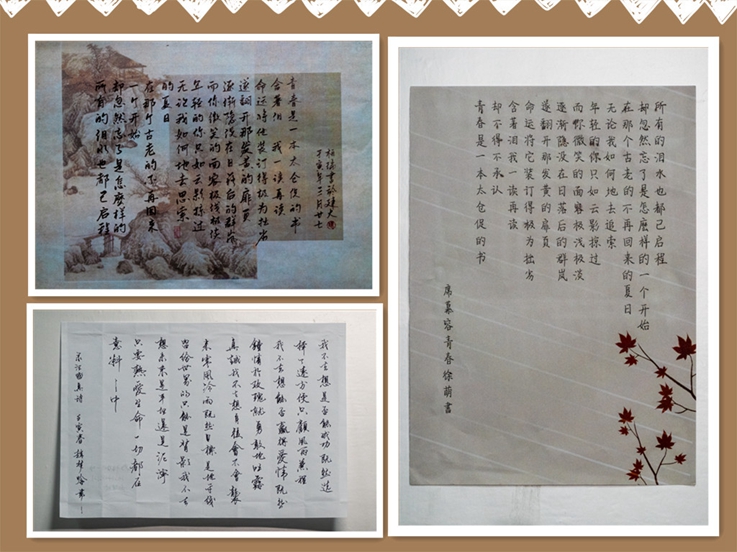 所有的泪水也都已启程
却忽然忘了是怎麽样的
一个开始
在那个古老的不再回来
的夏日
无论我如何地去思索
年轻的你只如云影掠过
而你微笑的面容极浅极淡
逐渐隐没在日落后的群岚
遂翻开那发黄的扉页
命运将他装订得极为拙劣
含著泪 我一读再读
青春是一本太仓促的书
所有的泪水也都已启程
却忽然忘了是怎麽样的一个开始
在那个古老的不再回来的夏日
无论我如何地去追索
年轻的你只如云影掠过
而你微笑的面容极浅极淡
逐渐隐没在日落后的群岚
遂翻开那发黄的扉页
命运将它装订得极为拙劣
含著泪我一读再读
却不得不承认
青春是一本太仓促的书
席慕容青春徐萌書
我不去想是否能成功既然选
择了遠方便只顧風雨兼程
我不去想能否贏得愛情既然
鍾情於玫瑰就勇敢地吐露
真誠我不去想身後會不會襲
来寒風冷雨既然目標是地平线
留給世界的只能是背影我不去
想未来是平坦還是泥濘
只要熱愛生命一切都在
意料之中
录汪國真詩 壬寅春